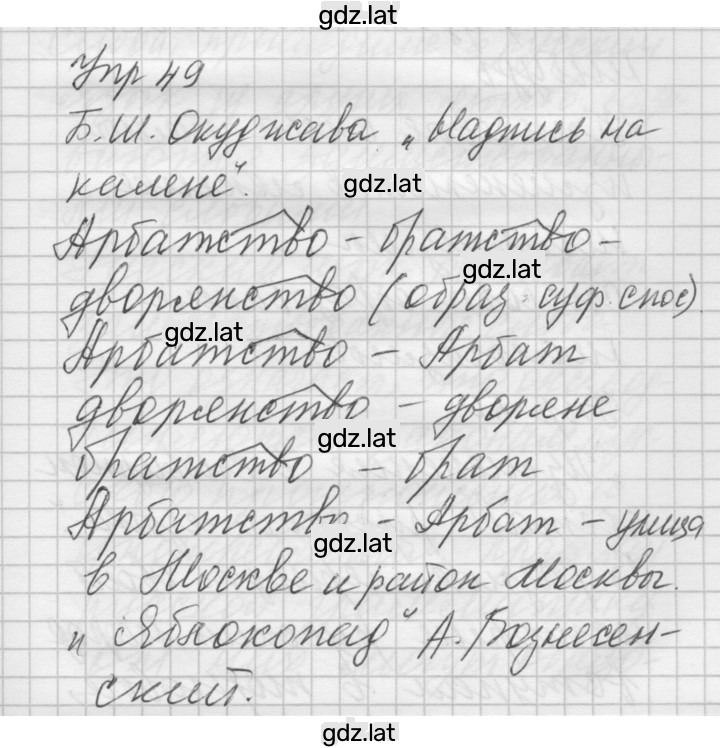 gdz.lat
Упр 49
Б.Ш. Окуджава „Надпись на
камне".
gdz.lat
Арбатство – братство –
gdz.lat
дворянство (образ. суф. спос).
gdz.lat
Арбатство – Арбат
дворянство – дворяне
gdz.lat
братство – брат
Арбатство – Арбат – улица
gdz.lat
в Москве и район Москвы.
„Яблокопад" А. Вознесен-
ский.
gdz.lat